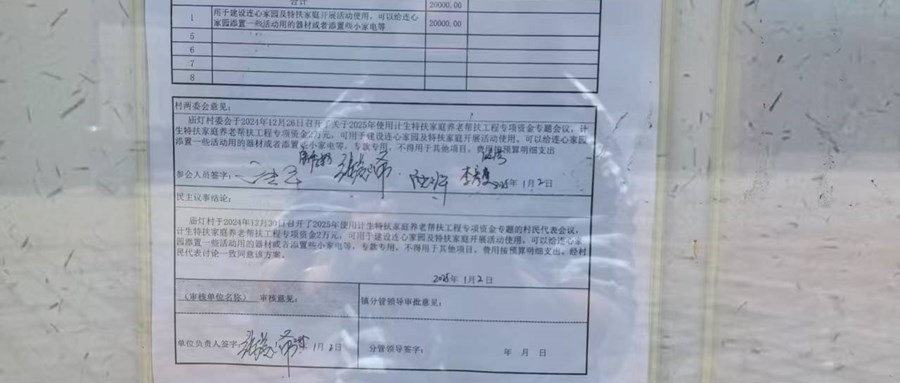 合计 20000.00
1 用于建设连心家园及特扶家庭开展活动使用，可以给连心 20000.00
家园添置一些活动用的器材或者添置些小家电等
5
6
7
8
村两委会意见：
庙灯村委会于2024年12月26日召开了关于2025年使用计生特扶家庭养老帮扶工程专项资金专题会议，计
生特扶家庭养老帮扶工程专项资金2万元，可用于建设连心家园及特扶家庭开展活动使用，可以给连心家园
添置一些活动用的器材或者添置些小家电等，专款专用，不得用于其他项目，费用按预算明细支出
参会人员签字： 2025年1月2日
民主议事结论：
庙灯村于2024年12月30日召开了2025年使用计生特扶家庭养老帮扶工程专项资金专题的村民代表会议，
计生特扶家庭养老帮扶工程专项资金2万元，可用于建设连心家园及特扶家庭开展活动使用，可以给连心家
园添置一些活动用的器材或者添置些小家电等，专款专用，不得用于其他项目，费用按预算明细支出。经村
民代表讨论一致同意该方案。
2025年1月2日
（审核单位名称）审核意见： 镇分管领导审批意见：
单位负责人签字： 1月2日 分管领导签字： 年 月 日